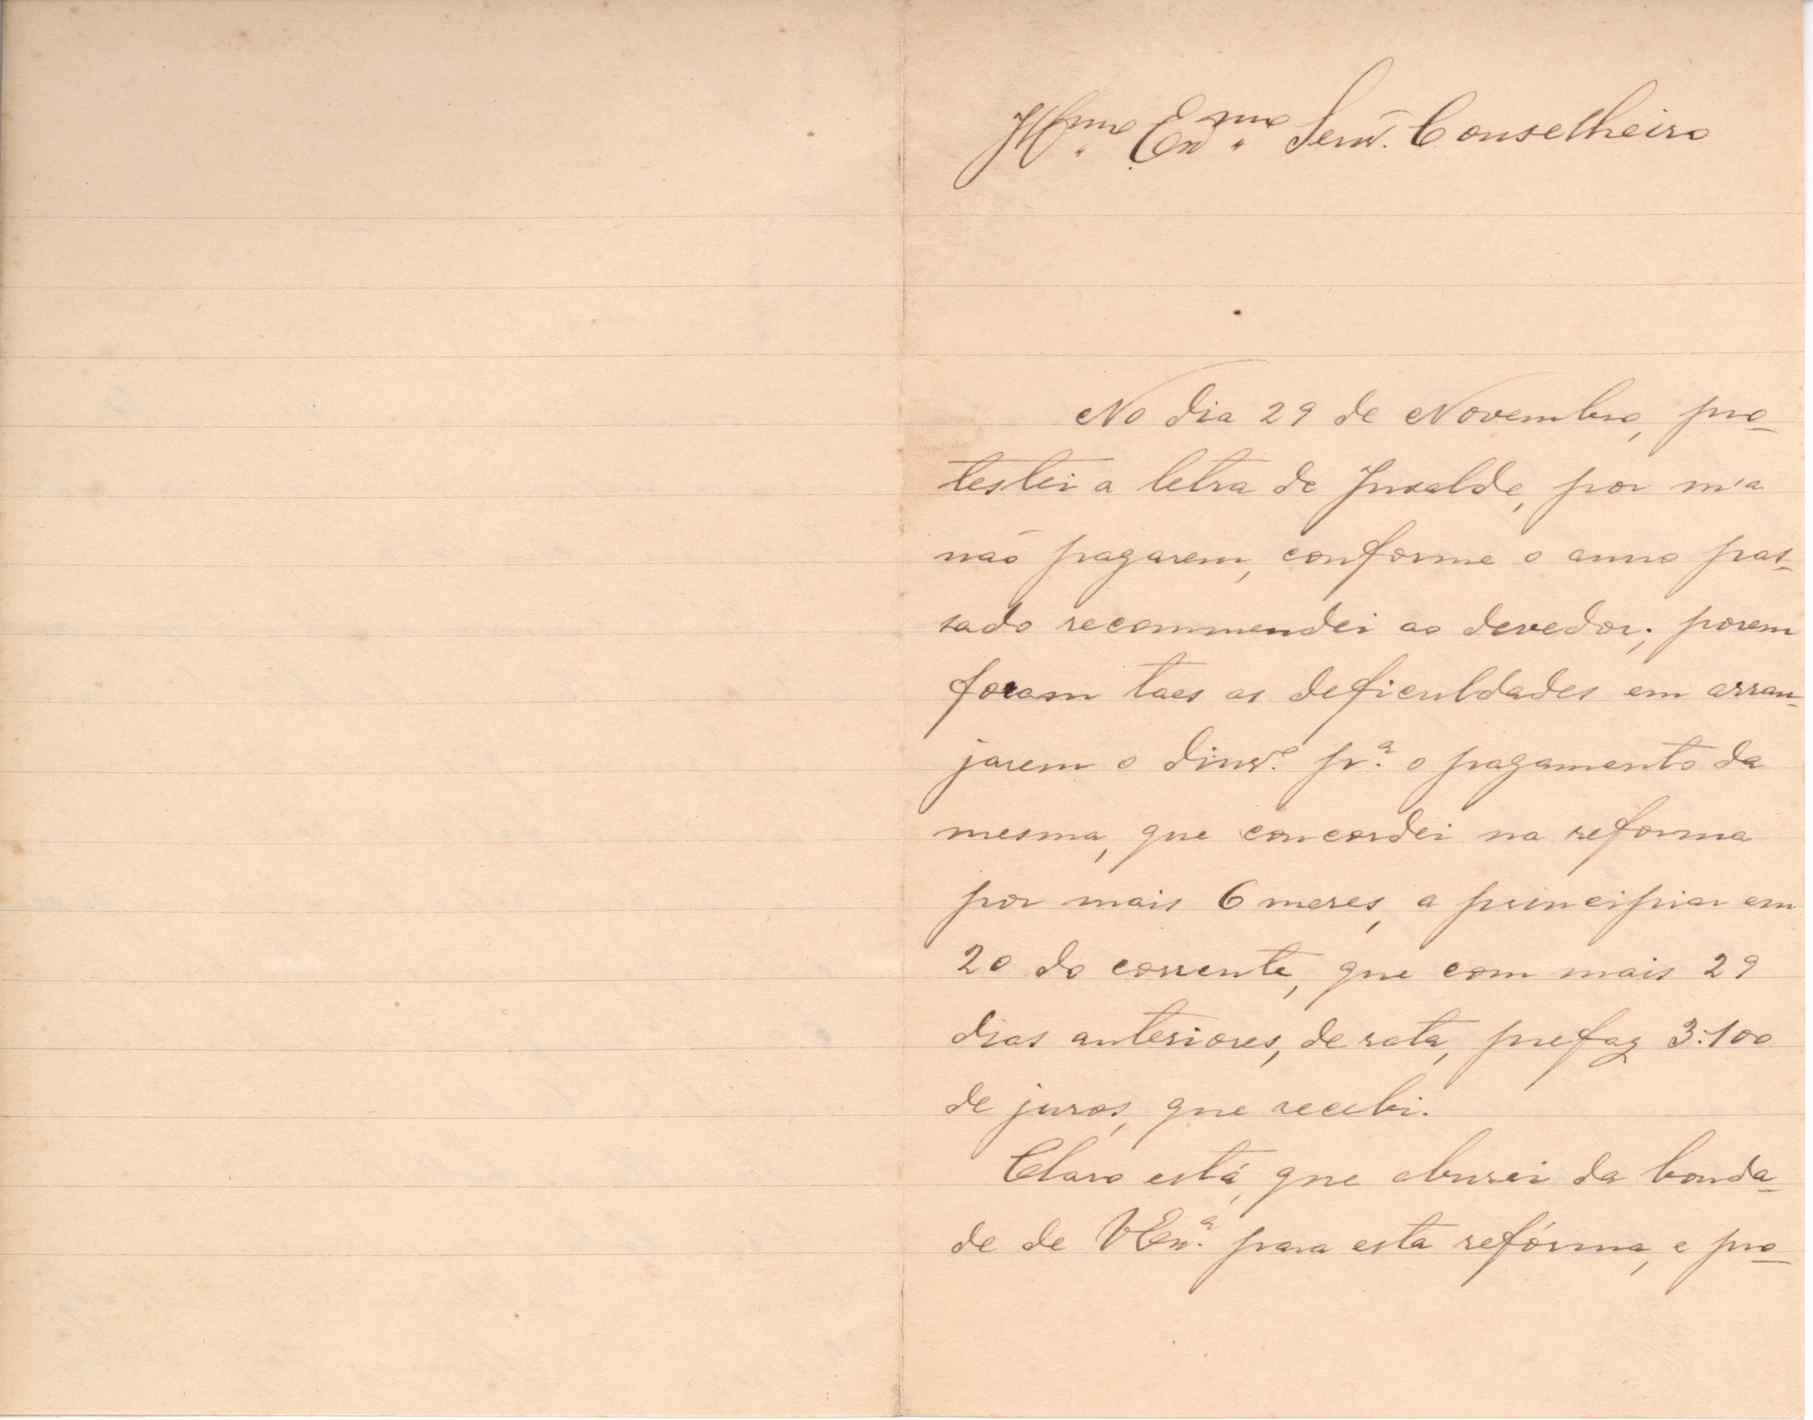 Illmo. Exmo. Senr. Conselheiro
No dia 29 de Novembro, pro-
testei a letra de Juxalde, por m'a
não pagarem, conforme o anno pas-
sado recommendei ao devedor; porem
foram taes as deficuldades em arran-
jarem o dinro. pra. o pagamento da
mesma, que concordei na reforma
por mais 6 meses, a principiar em
20 do corrente, que com mais 29
dias anteriores, de rata, prefaz 3:100
de juros, que recebi.
Claro está, que abusei da bonda-
de de VExa. para esta refórma, e pro-